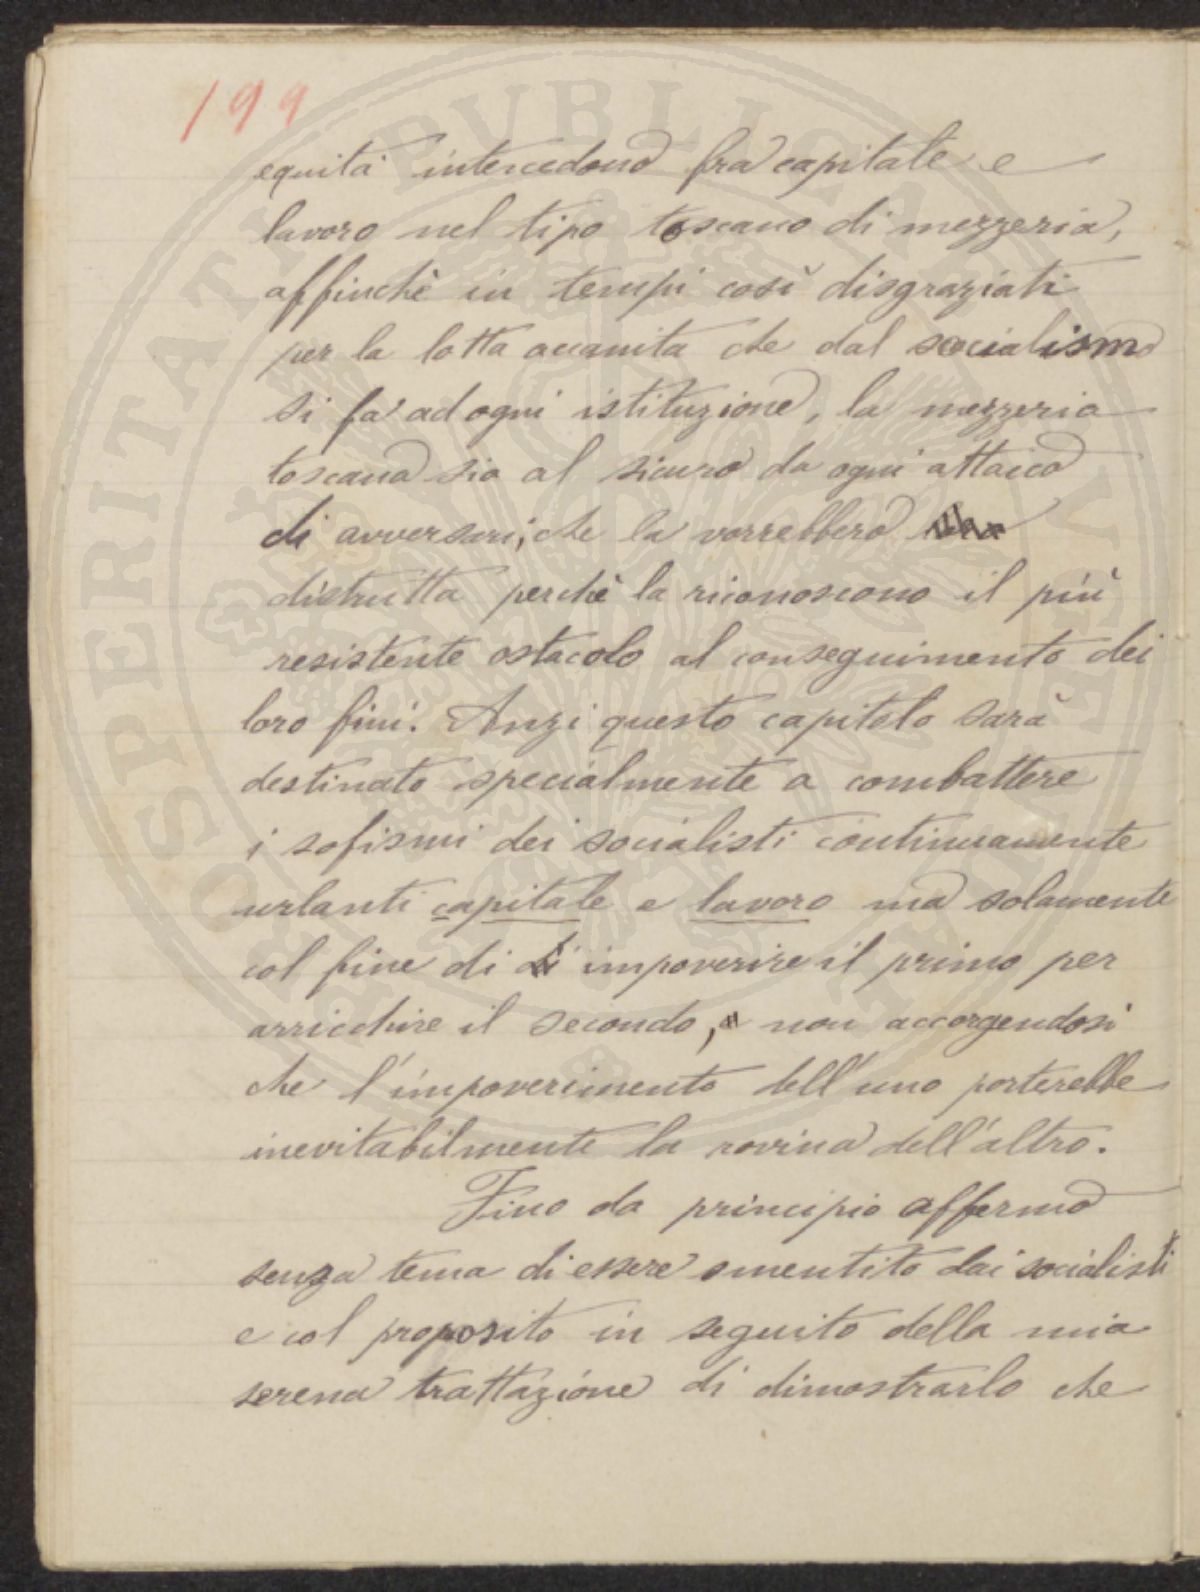 199
equità intercedono fra capitale e
lavoro nel tipo toscano di mezzeria,
affinchè in tempi così disgraziati
per la lotta accanita che dal socialismo
si fa ad ogni istituzione, la mezzeria
toscana sia al sicuro da ogni attacco
di avversari, che la vorrebbero
distrutta perchè la riconoscono il più
resistente ostacolo al conseguimento dei
loro fini. Anzi questo capitolo sarà
destinato specialmente a combattere
i sofismi dei socialisti continuamente
urlanti capitale e lavoro ma solamente
col fine di impoverire il primo per
arricchire il secondo, non accorgendosi
che l'impoverimento dell'uno porterebbe
inevitabilmente la rovina dell'altro.
Fino da principio affermo
senza tema di essere smentito dai socialisti
e col proposito in seguito della mia
serena trattazione di dimostrarlo che
PUBLICAE
PROSPERITATI